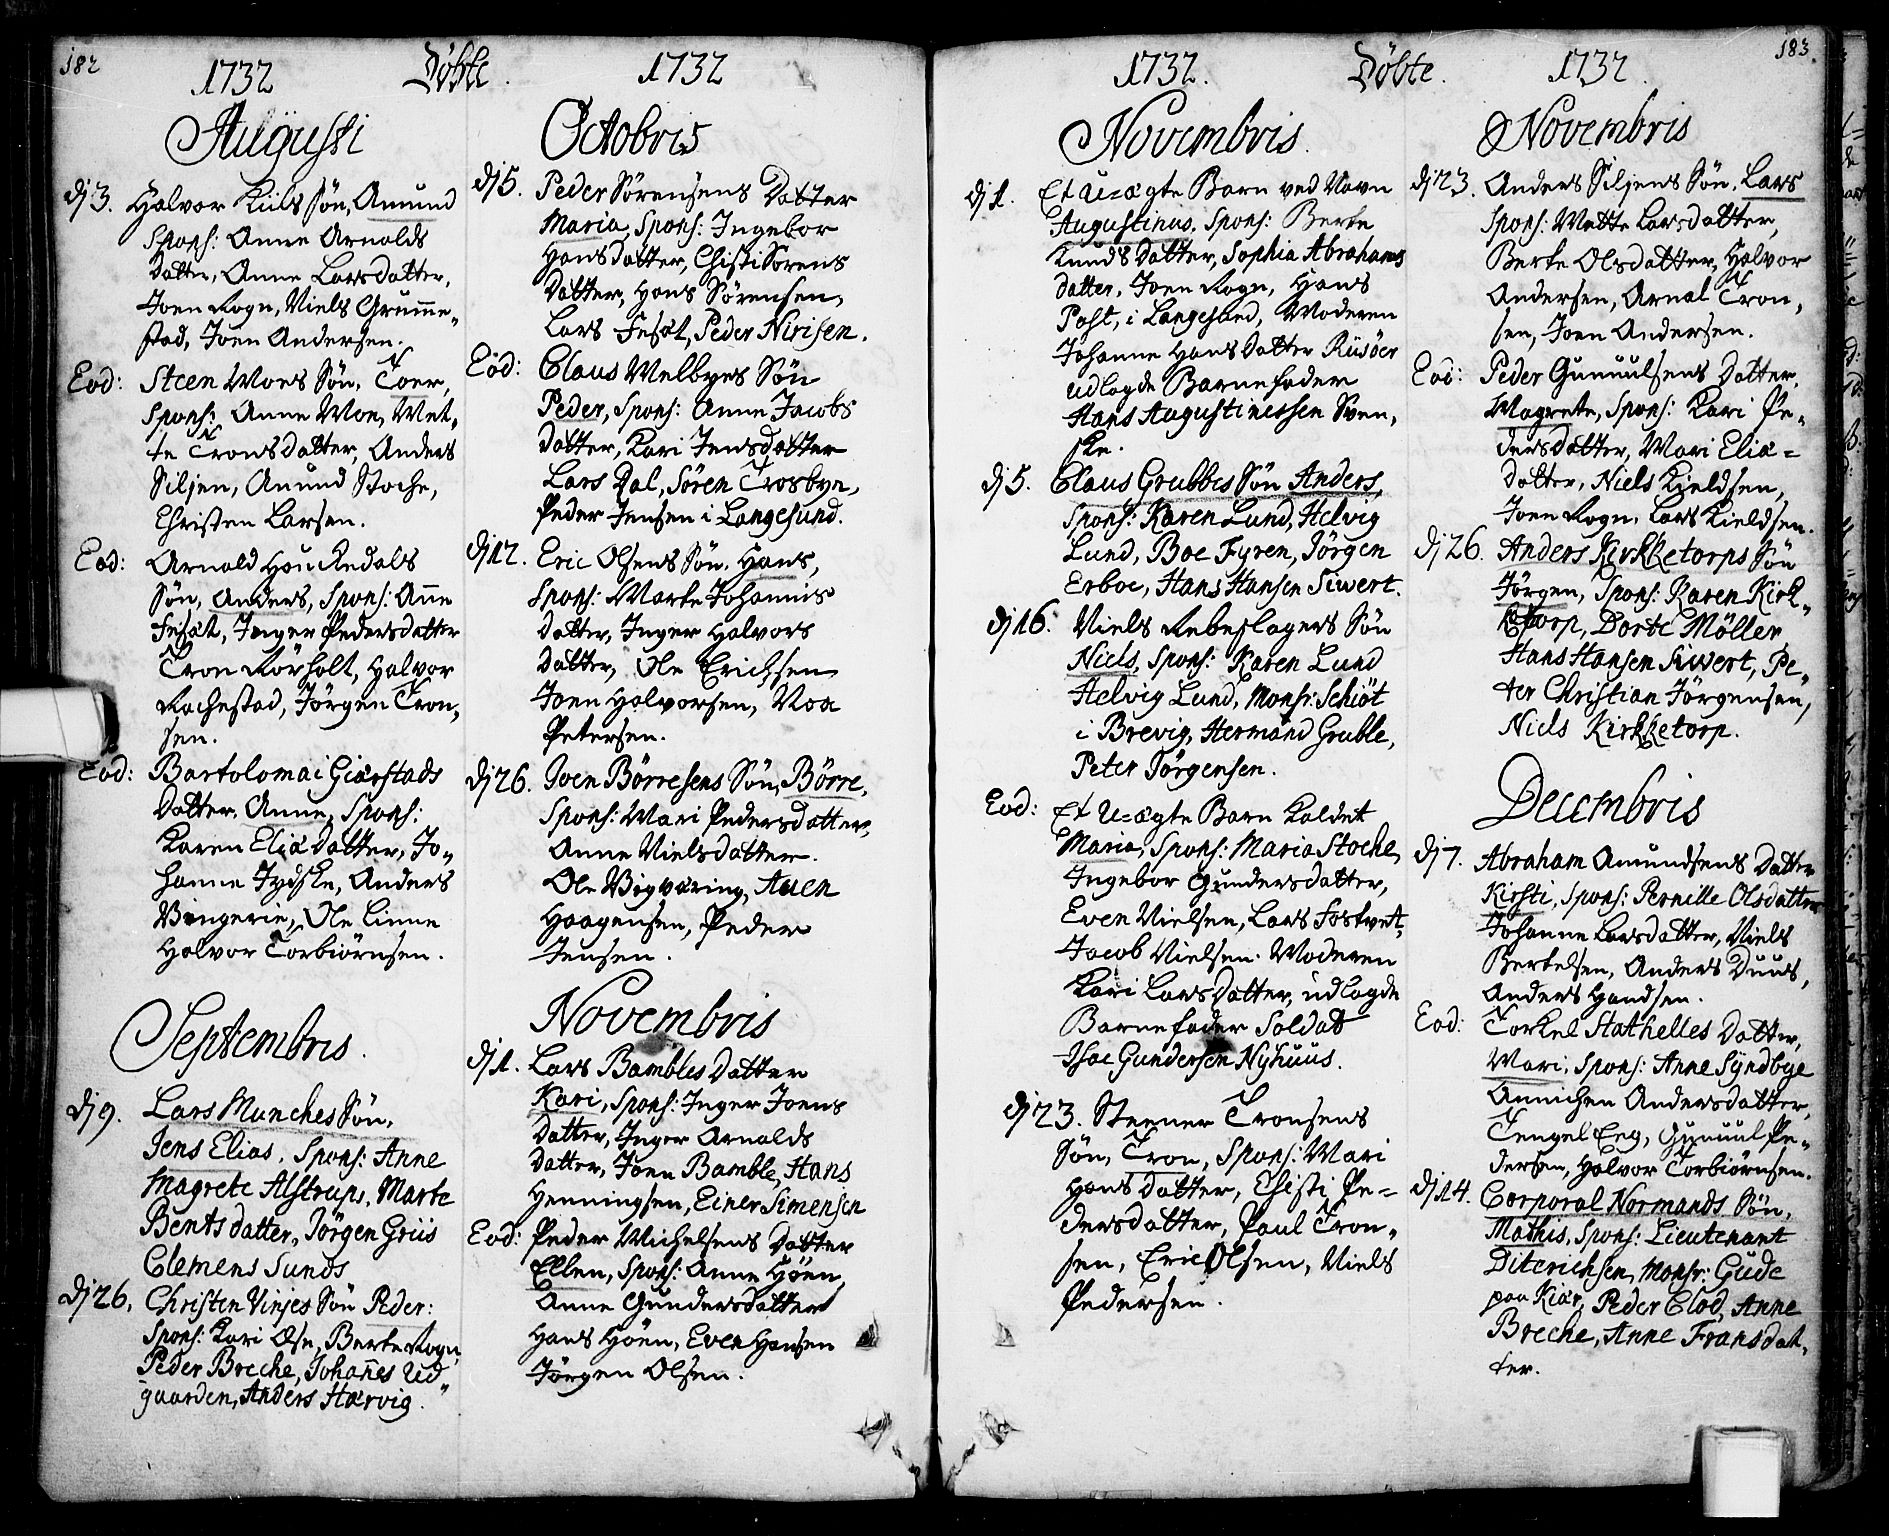 182
1732 Döbte. 1732
Augusti
dj 3. Halvor Kiils søn, Amund
Spons: Anne Arnolds
Datter, Anne Larsdatter,
Joen Rogn, Niels Grumme„
stad, Joen Andersen.
Eod: Steen Moes Søn, Toer,
Spons: Anne Moe, Met„
te Tronsdatter, Anders
Siljen, Amund Stoche,
Christen Larsen.
Eod: Arnold Houckedals
Søn, Anders, Spons: Anne
Fesæt, Inger Pedersdatter
Tron Rörholt, Halvor
Rachestad, Jörgen Tron„
sen.
Eod: Bartolomæi Giærstads
Datter, Anne, Spons:
Karen Eliædatter, Jo„
hanne Jydske, Anders
Vingerie, Ole Linne
Halvor Torbiörnsen.
Septembris.
dj 9. Lars Munches Søn,
Jens Elias, Spons: Anne
Magrete Alstrups, Marte
Bentsdatter, Jörgen Griis
Clemens Sunds
dj 26. Christen Vinjes Søn Peder:
Spons: Kari Ose, Berte Rogn,
Peder Breche, Johannes Ud„
gaarden, Anders Hærvig.
Octobris
dj 5. Peder Sörensens Datter
Maria, Spons: Ingebor
Hansdatter, Chisti Sörens
Datter, Hans Sörensen,
Lars Fesæt, Peder Nirisen.
Eod: Claus Melbyes Søn
Peder, Spons: Anne Jacobs
datter, Kari Jensdatter
Lars Dal, Sören Trosbye,
Peder Jensen i Langesund.
dj 12. Eric Olsens Søn, Hans,
Spons: Marte Johannis
datter, Inger Halvors
datter, Ole Erichsen
Joen Halvorsen, Noa
Petersen.
dj 26. Joen Börresens Søn, Börre,
Spons: Mari Pedersdatter,
Anne Nielsdatter.
Ole Vigværing, Auen
Haagensen, Peder
Jensen.
Novembris
dj 1. Lars Bambles Datter
Kari, Spons: Inger Joens
Datter, Inger Arnolds
datter, Joen Bamble, Hans
Henningsen, Einer Simensen
Eod: Peder Michelsens Datter
Ellen, Spons: Anne Höen,
Anne Gundersdatter
Hans Höen, Even Hansen
Jörgen Olsen.
183.
1732. Döbte. 1732
Novembris.
dj 1. Et Uægte Barn ved Navn
Augustinus, Spons: Berte
Knuds datter, Sophia Abrahams
datter, Joen Rogn, Hans
Post, i Langesund, Moderen
Johanne Hansdatter Riisöer
udlagde Barnefader
Hans Augustinessen Sven„
ske.
dj 5. Claus Grubbes Søn Anders,
Spons: Karen Lund, Helvig
Lund, Boe Fyren, Jörgen
Erboe, Hans Hansen Siwert.
dj 16. Niels Rebeslagers Søn
Niels, Spons: Karen Lund
Helvig Lund, Monsr: Schiöt
i Brevig, Hermand Gruble,
Peter Jörgensen.
Eod: Et Uægte Barn kaldet
Maria, Spons: Maria Stoche,
Ingebor Gundersdatter,
Even Nielsen, Lars Fostvet,
Jacob Nielsen. Moderen
Kari Larsdatter, udlagde
Barnefader Soldat
Isac Gundersen Nyhuus.
dj 23. Steener Tronsens
Søn, Tron, Spons: Mari
Hansdatter, Chisti Pe=
dersdatter, Paul Tron„
sen, Eric Olsen, Niels
Pedersen.
Novembris
dj 23. Anders Siljens Søn, Lars
Spons: Mette Larsdatter,
Berte Olsdatter, Halvor
Andersen, Arnal Tron„
sen, Joen Andersen.
Eod: Peder Gunuulsens Datter,
Magrete, Spons: Kari Pe„
dersdatter, Mari Eliæ=
datter, Niels Kieldsen,
Joen Rogn, Lars Kieldsen.
dj 26. Anders Kirkketorps Søn
Jörgen, Spons: Karen Kirk„
torp, Dorte Möller
Hans Hansen Siwert, Pe„
ter Christian Jörgensen,
Niels Kirkketorp.
Decembris
dj 7. Abraham Amundsens Datter
Kirsti, Spons: Pernille Olsdatter
Johanne Larsdatter, Niels
Bertelsen, Anders Duus,
Anders Handsen.
Eod: Torkel Stathelles Datter,
Mari, Spons: Anne Syndbye
Annichen Andersdatter,
Tengel Eeg, Gunuul Pe„
dersen, Halvor Torbiörnsen.
dj 14. Corporal Normands Søn,
Mathis, Spons: Lieutenant
Diterichsen, Monsr: Gude
paa Kiær, Peder Clod, Anne
Breche, Anne Fransdat„
ter.